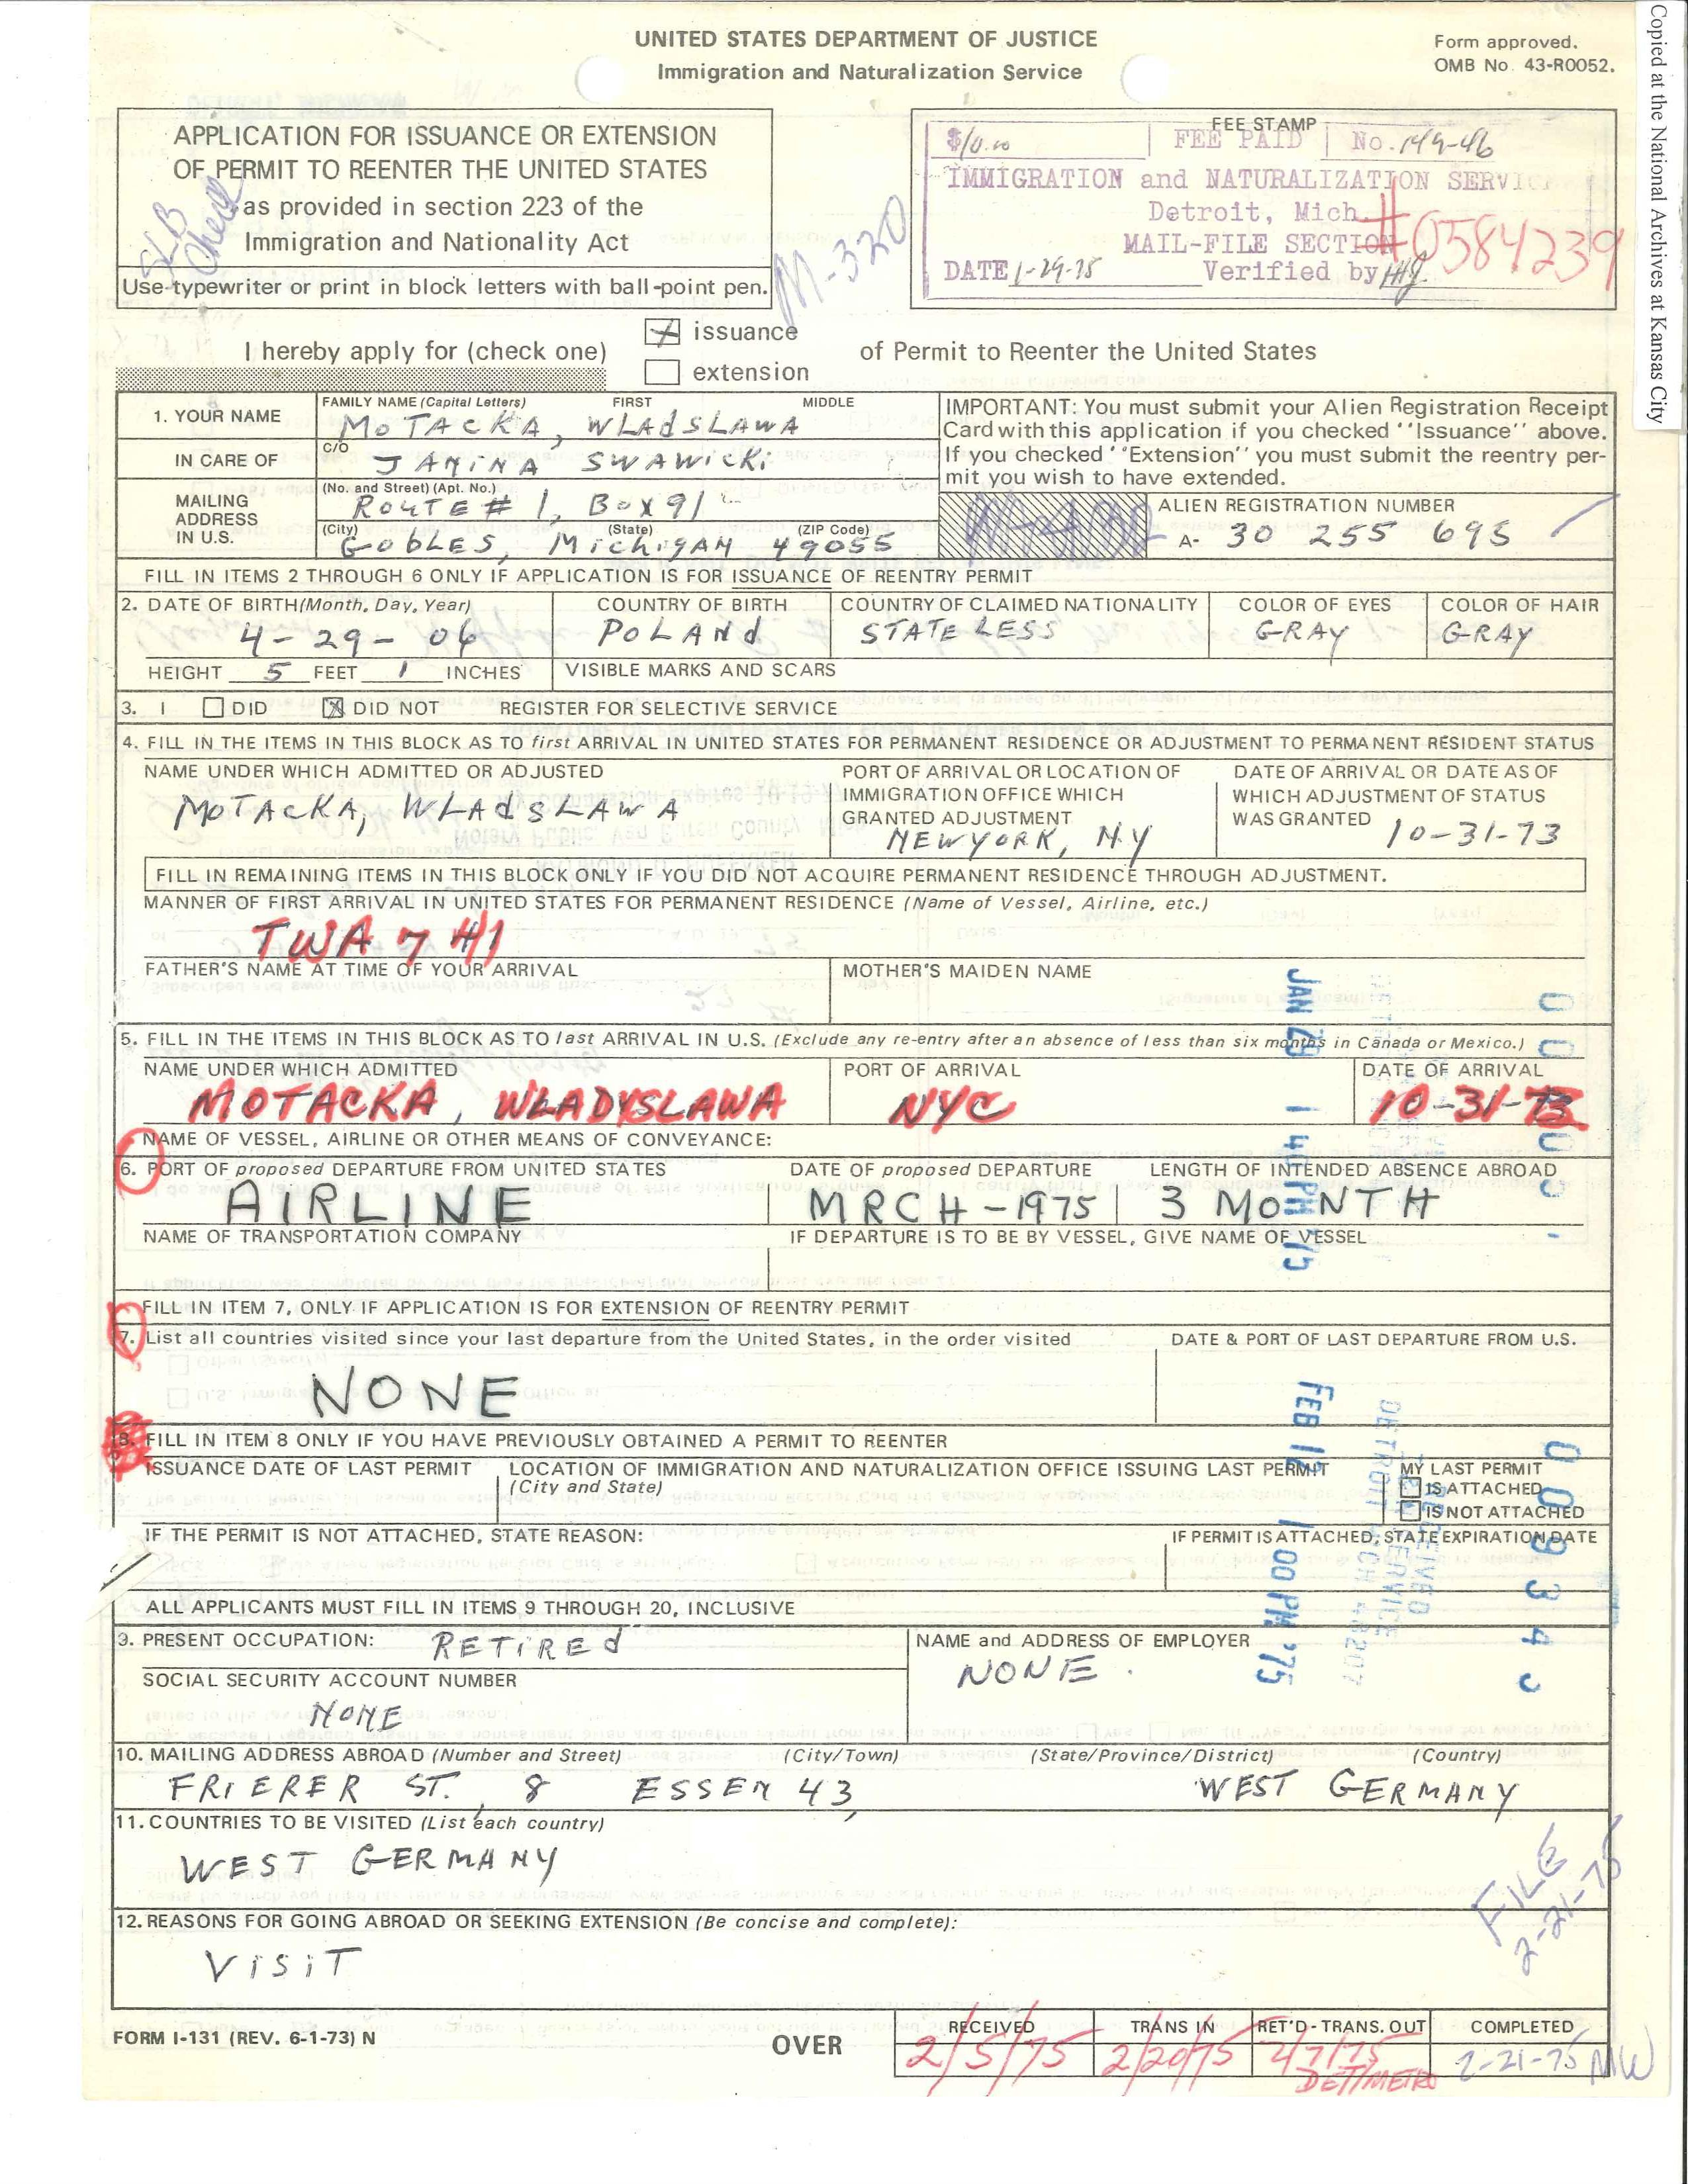 Copied at the National Archives at Kansas City
UNITED STATES DEPARTMENT OF JUSTICE
Immigration and Naturalization Service
Form approved.
OMB No. 43-R0052.
APPLICATION FOR ISSUANCE OR EXTENSION
OF PERMIT TO REENTER THE UNITED STATES
as provided in section 223 of the
Immigration and Nationality Act
Use typewriter or print in block letters with ball-point pen.
M-320
FEE STAMP
$10.00 FEE PAID No. 149-46
IMMIGRATION and NATURALIZATION SERVIC
Detroit, Mich.
MAIL-FILE SECTION
#0584239
DATE 1-29-75 Verified by
I hereby apply for (check one)
issuance
extension
of Permit to Reenter the United States
1. YOUR NAME
FAMILY NAME (Capital Letters) FIRST MIDDLE
MOTACKA, WLAdSLAWA
IN CARE OF
C/O
JANINA SWAWICKi
MAILING ADDRESS IN U.S.
(No. and Street) (Apt. No.)
ROUTE # 1, BOX 91
(City) (State) (ZIP Code)
GOBLES, MichiGAN 49055
IMPORTANT: You must submit your Alien Registration Receipt
Card with this application if you checked "Issuance" above.
If you checked "Extension" you must submit the reentry per-
mit you wish to have extended.
ALIEN REGISTRATION NUMBER
A- 30 255 695
FILL IN ITEMS 2 THROUGH 6 ONLY IF APPLICATION IS FOR ISSUANCE OF REENTRY PERMIT
2. DATE OF BIRTH (Month, Day, Year) COUNTRY OF BIRTH COUNTRY OF CLAIMED NATIONALITY COLOR OF EYES COLOR OF HAIR
4-29-06 POLANd STATELESS GRAY GRAY
HEIGHT 5 FEET 1 INCHES VISIBLE MARKS AND SCARS
3. I DID DID NOT REGISTER FOR SELECTIVE SERVICE
4. FILL IN THE ITEMS IN THIS BLOCK AS TO first ARRIVAL IN UNITED STATES FOR PERMANENT RESIDENCE OR ADJUSTMENT TO PERMANENT RESIDENT STATUS
NAME UNDER WHICH ADMITTED OR ADJUSTED
MOTACKA, WLAdSLAWA
PORT OF ARRIVAL OR LOCATION OF
IMMIGRATION OFFICE WHICH
GRANTED ADJUSTMENT
NEWYORK, N.Y
DATE OF ARRIVAL OR DATE AS OF
WHICH ADJUSTMENT OF STATUS
WAS GRANTED 10-31-73
FILL IN REMAINING ITEMS IN THIS BLOCK ONLY IF YOU DID NOT ACQUIRE PERMANENT RESIDENCE THROUGH ADJUSTMENT.
MANNER OF FIRST ARRIVAL IN UNITED STATES FOR PERMANENT RESIDENCE (Name of Vessel, Airline, etc.)
TWA 741
FATHER'S NAME AT TIME OF YOUR ARRIVAL MOTHER'S MAIDEN NAME
JAN 29 1 40 PM '75
5. FILL IN THE ITEMS IN THIS BLOCK AS TO last ARRIVAL IN U.S. (Exclude any re-entry after an absence of less than six months in Canada or Mexico.)
NAME UNDER WHICH ADMITTED PORT OF ARRIVAL DATE OF ARRIVAL
MOTACKA, WLADYSLAWA NYC 10-31-73
NAME OF VESSEL, AIRLINE OR OTHER MEANS OF CONVEYANCE:
6. PORT OF proposed DEPARTURE FROM UNITED STATES DATE OF proposed DEPARTURE LENGTH OF INTENDED ABSENCE ABROAD
AIRLINE MRCH-1975 3 MONTH
NAME OF TRANSPORTATION COMPANY IF DEPARTURE IS TO BE BY VESSEL, GIVE NAME OF VESSEL
FILL IN ITEM 7, ONLY IF APPLICATION IS FOR EXTENSION OF REENTRY PERMIT
7. List all countries visited since your last departure from the United States, in the order visited DATE & PORT OF LAST DEPARTURE FROM U.S.
NONE
FEB 12 1 00 PM '75
8. FILL IN ITEM 8 ONLY IF YOU HAVE PREVIOUSLY OBTAINED A PERMIT TO REENTER
ISSUANCE DATE OF LAST PERMIT LOCATION OF IMMIGRATION AND NATURALIZATION OFFICE ISSUING LAST PERMIT MY LAST PERMIT
(City and State) IS ATTACHED
IS NOT ATTACHED
IF THE PERMIT IS NOT ATTACHED, STATE REASON: IF PERMIT IS ATTACHED, STATE EXPIRATION DATE
ALL APPLICANTS MUST FILL IN ITEMS 9 THROUGH 20, INCLUSIVE
9. PRESENT OCCUPATION: RETiREd NAME and ADDRESS OF EMPLOYER
NONE
SOCIAL SECURITY ACCOUNT NUMBER
NONE
10. MAILING ADDRESS ABROAD (Number and Street) (City/Town) (State/Province/District) (Country)
FRIERER ST. 8 ESSEN 43, WEST GERMANY
11. COUNTRIES TO BE VISITED (List each country)
WEST GERMANY
12. REASONS FOR GOING ABROAD OR SEEKING EXTENSION (Be concise and complete):
VISiT
FILE
2-21-75
FORM I-131 (REV. 6-1-73) N
OVER
RECEIVED TRANS IN RET'D-TRANS. OUT COMPLETED
2/5/75 2/20/75 2/7/75 2-21-75 MW
DET/METRO